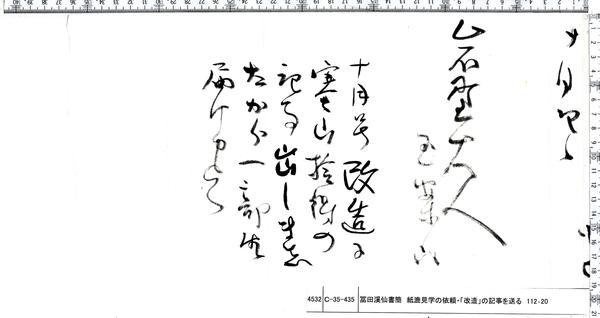 十月
岩野大人
玉案下
十月号改造に
寒山拾得の
記事出しまし
たから一部
届け
4532 C-35-435 冨田溪仙書簡 紙漉見学の依頼・「改造」の記事を送る 112-20